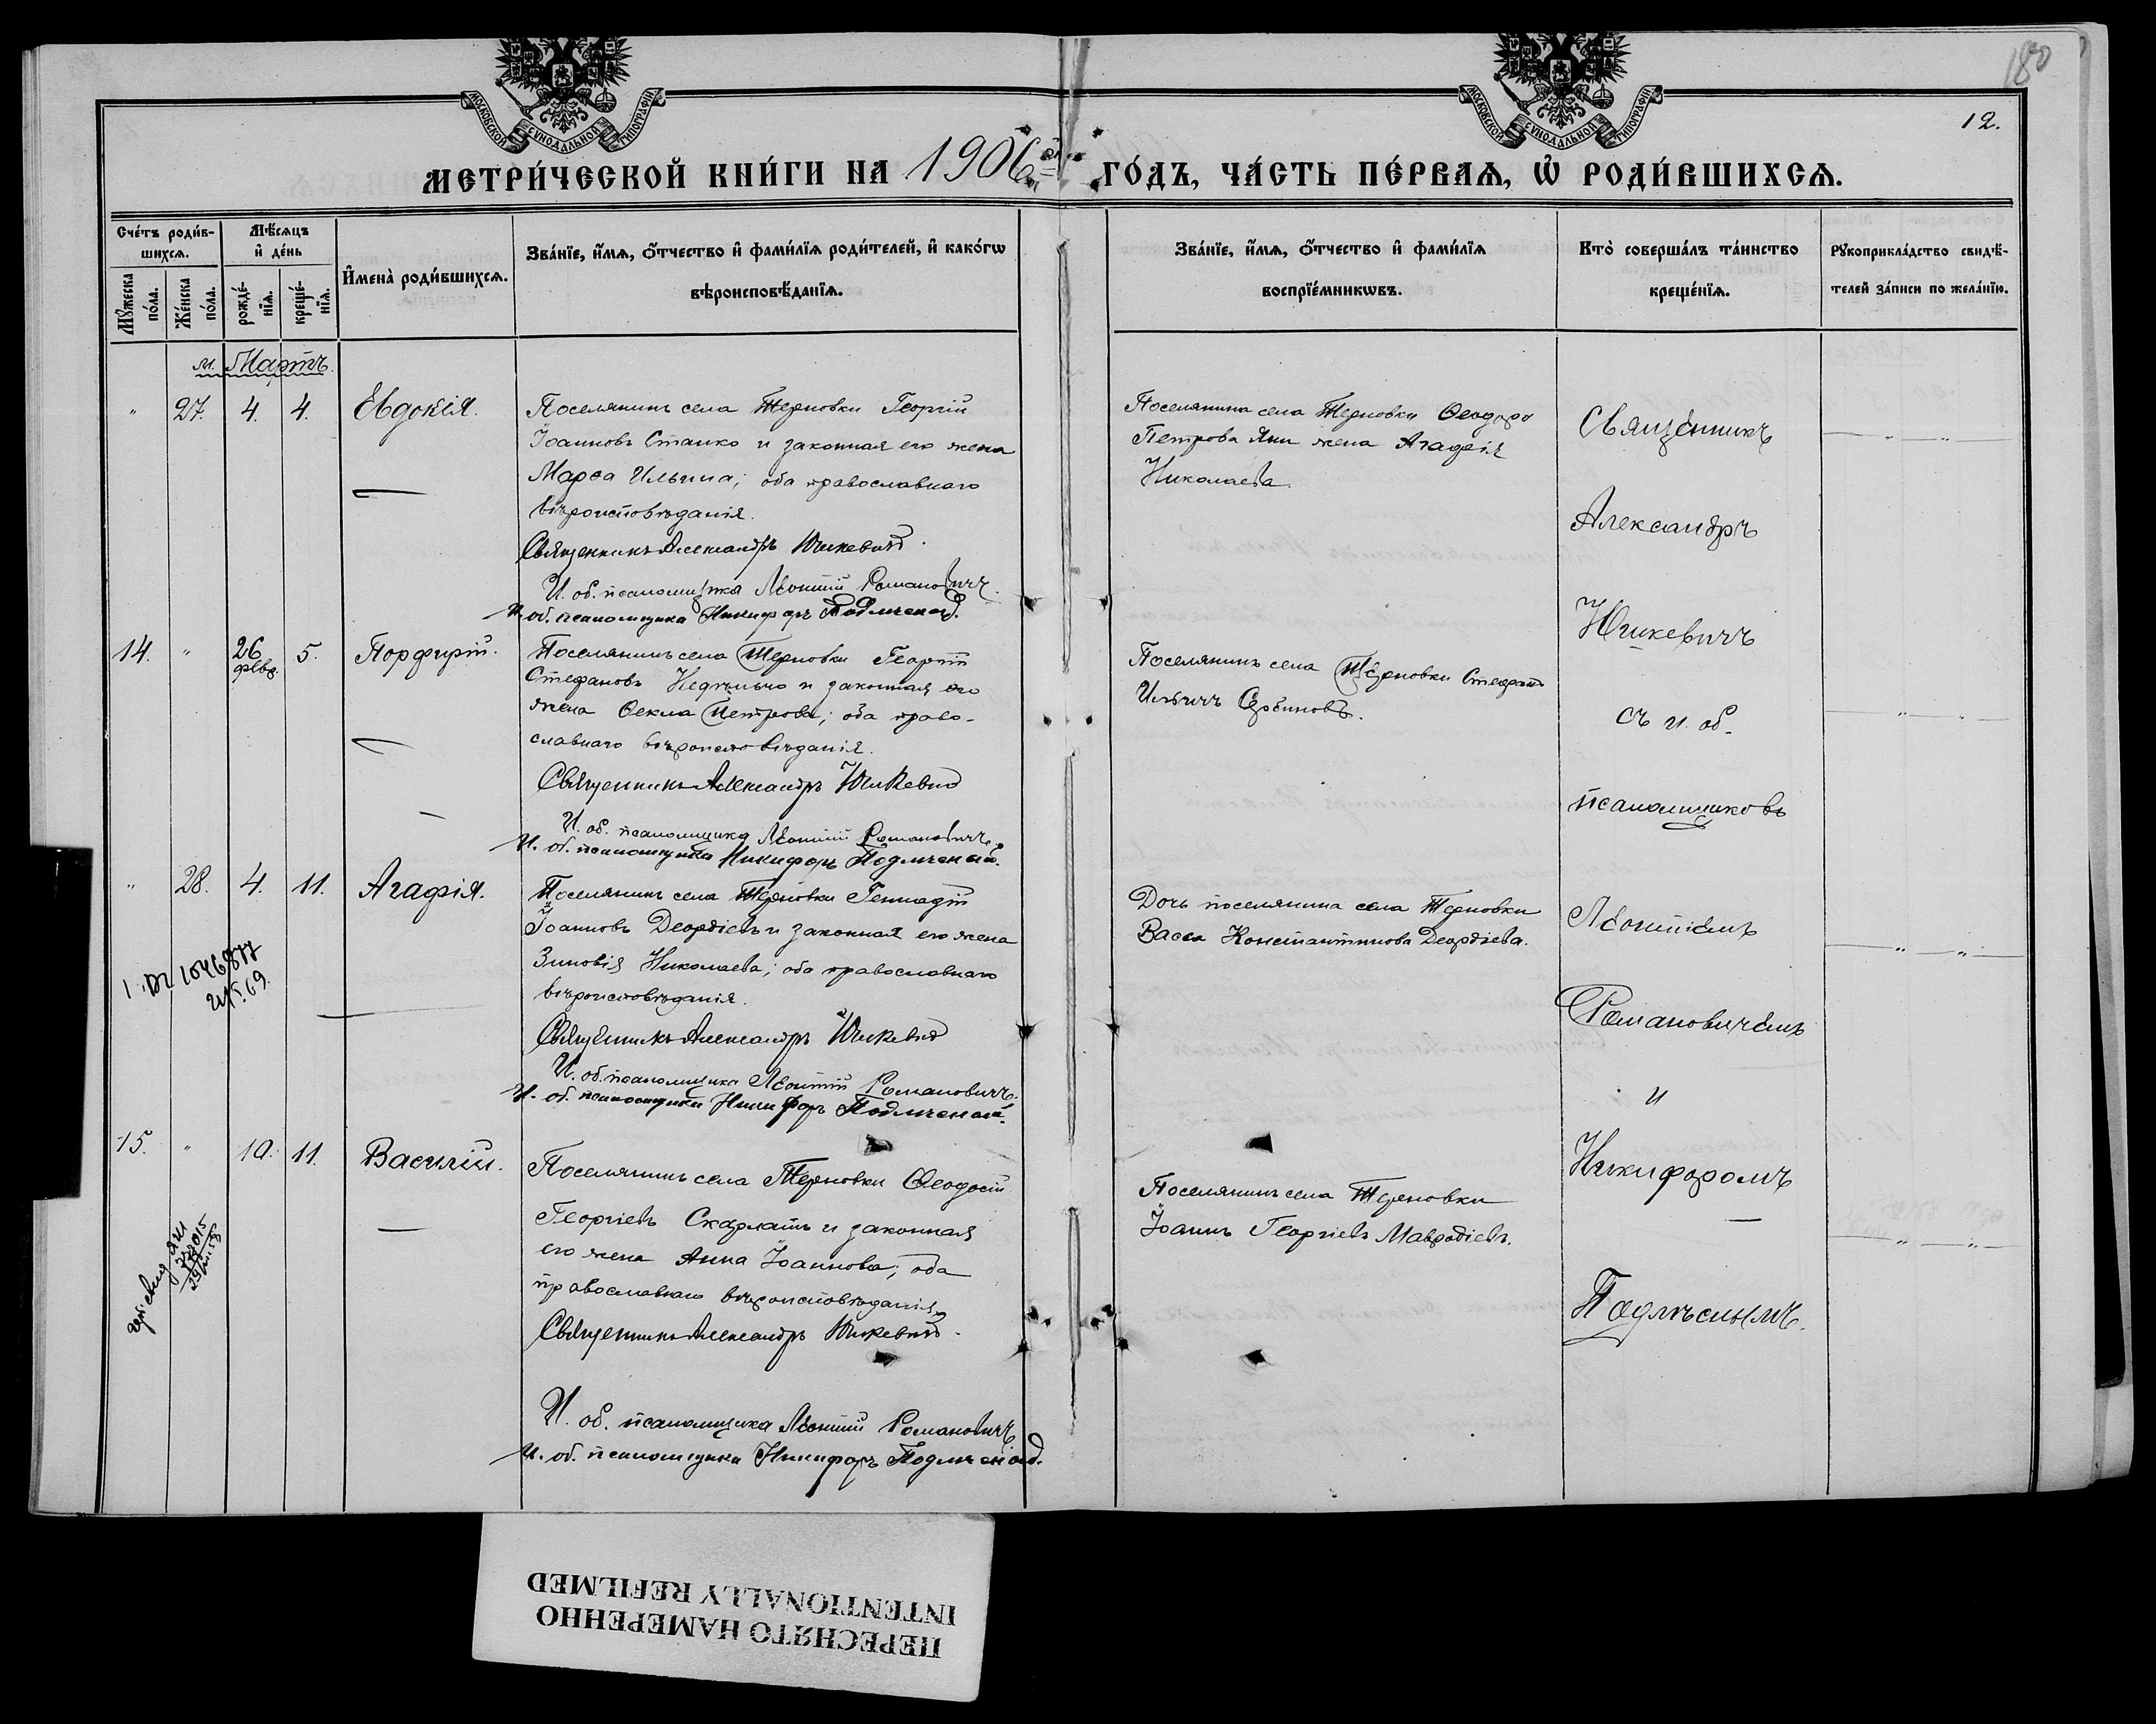 180
12.
МОСКОВСКОЙ СѴНОДАЛЬНОЙ ТИПОГРАФІИ
МОСКОВСКОЙ СѴНОДАЛЬНОЙ ТИПОГРАФІИ
МЕТРИ́ЧЕСКОЙ КНИ́ГИ НА 1906 й
ГО́ДЪ, ЧА́СТЬ ПЕ́РВАѦ, Ѽ РОДИ́ВШИХСѦ.
Сче́тъ роди́в-
шихсѧ.
Мꙋ́жеска по́ла.
Же́нска по́ла.
Мѣ́сѧцъ
и҆ де́нь
рожде́-
нїѧ.
креще́-
нїѧ.
И҆мена̀ роди́вшихсѧ.
Зва́нїе, и҆́мѧ, ѻ҆́тчество и҆ фами́лїѧ роди́телей, и҆ како́гѡ
вѣроисповѣ́данїѧ.
Зва́нїе, и҆́мѧ, ѻ҆́тчество и҆ фами́лїѧ
воспрїе́мникѡвъ.
Кто̀ соверша́лъ та́инство
креще́нїѧ.
Рꙋкоприкла́дство свидѣ́-
телей за́писи по жела́нїю.
м. Мартъ.
" 27. 4. 4. Евдокія.
Поселянинъ села Терновки Георгій
Іоанновъ Станко и законная его жена
Марѳа Ильина; оба православнаго
вѣроисповѣданія.
Священникъ Александръ Юшкевичъ.
И. об. псаломщика Леонтій Романовичъ.
И. об. псаломщика Никифоръ
Поселянина села Терновки Ѳеодора
Петрова Яни жена Агаѳія
Николаева.
14. " 26 февр. 5. Порфирій.
Поселянинъ села Терновки Георгій
Стефановъ и законная его
жена Ѳекла Петрова; оба право-
славнаго вѣроисповѣданія.
Священникъ Александръ Юшкевичъ
И. об. псаломщика Леонтій Романовичъ.
И. об. псаломщика Никифоръ
Поселянинъ села Терновки Стефанъ
Ильичъ Сербиновъ.
" 28. 4. 11. Агафія.
Поселянинъ села Терновки Геннадій
Іоанновъ Деордіевъ и законная его жена
Зиновія Николаева; оба православнаго
вѣроисповѣданія.
Священникъ Александръ Юшкевичъ
И. об. псаломщика Леонтій Романовичъ.
И. об. псаломщика Никифоръ
Дочь поселянина села Терновки
Васса Константинова Деордіева.
15. " 10. 11. Василій.
Поселянинъ села Терновки Ѳеодосій
Георгіевъ Скарлатъ и законная
его жена Анна Іоаннова; оба
православнаго вѣроисповѣданія
Священникъ Александръ Юшкевичъ.
И. об. псаломщика Леонтій Романовичъ
И. об. псаломщика Никифоръ
Поселянинъ села Терновки
Іоаннъ Георгіевъ Мавродіевъ.
Священникъ
Александръ
Юшкевичъ
съ и. об.
псаломщиковъ
Леонтіемъ
Романовичемъ
и
Никифоромъ
ПЕРЕСНЯТО НАМЕРЕННО
INTENTIONALLY REFILMED